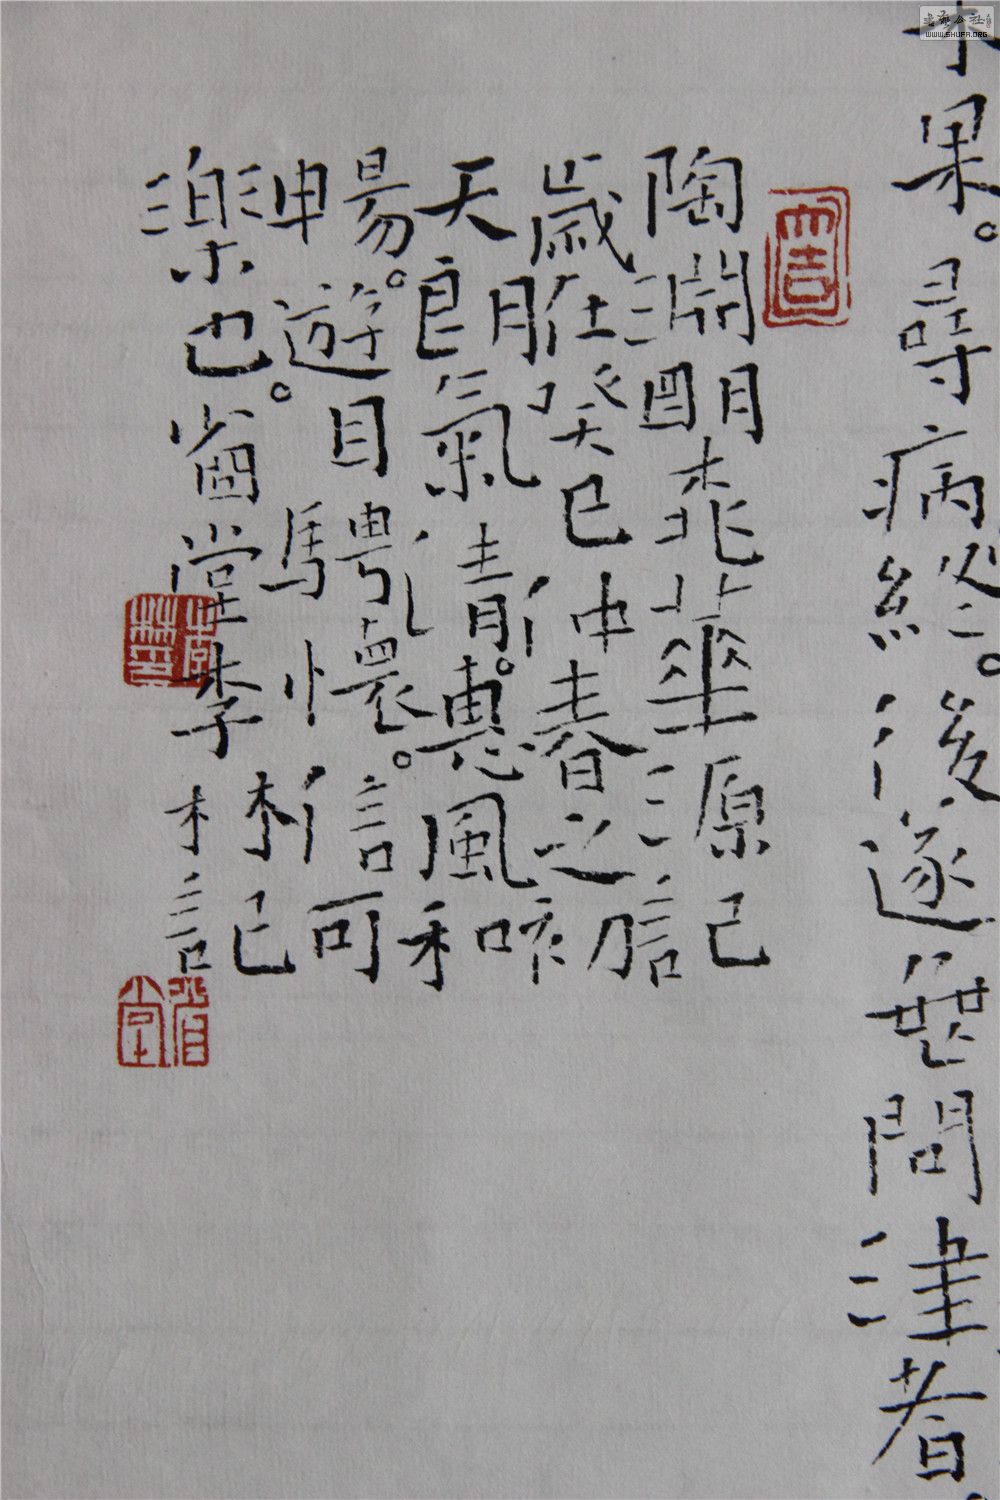 書藝公社
WWW.SHUFA.ORG
未果。尋病終。後遂無問津者。
大吉
陶淵明桃華源記
歲在癸巳仲春之初
天朗氣清。惠風和
暢。遊目騁懷。信可
樂也。堂李記